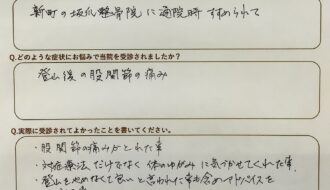 新町の坂爪整骨院に通院時 すすめられて
Q.どのような症状にお悩みで当院を受診されましたか?
登山後の股関節の痛み
Q.実際に受診されてよかったことを書いてください。
・股関節の痛みがとれた事
・対症療法だけでなく 体のゆがみに気づかせてくれた事
・登山をやめなくて良いと言われた事も含めアドバイスを